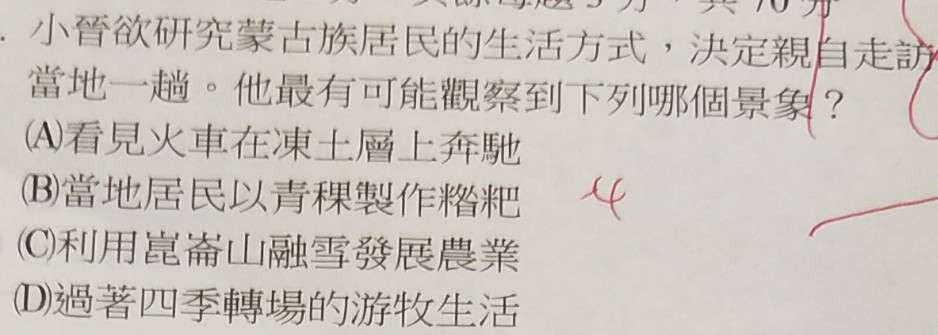 小晉欲研究蒙古族居民的生活方式，決定親自走訪
當地一趟。他最有可能觀察到下列哪個景象？
(A)看見火車在凍土層上奔馳
(B)當地居民以青稞製作糌粑
(C)利用崑崙山融雪發展農業
(D)過著四季轉場的游牧生活